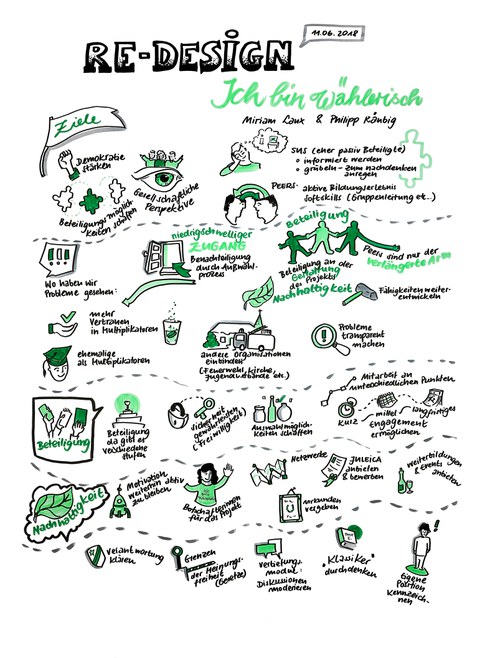 11.06.2018
RE-DESIGN
Ich bin Wählerisch
Miriam Laux & Philipp
Ziele
Demokratie
stärken
Beteiligungsmöglich
keiten schaffen
Gesellschaftliche
Perspektive
SUS (eher passiv Beteiligte)
informiert werden
grübeln - zum nachdenken
anregen
PEERS:
aktive Bildungserlebnis
Softskills (Gruppenleitung etc..)
Wo haben wir
Probleme gesehen:
niedrigschwelliger
ZUGANG
Benachteiligung
durch Auswahl-
prozess
Beteiligung
Peers sind nur der
verlängerte Arm
Beteiligung an der
Gestaltung
des Projekts
Nachhaltigkeit
Fähigkeiten weiter-
entwickeln
mehr
Vertrauen
in Multiplikatoren
ehemalige
als Multiplikatoren
andere Organisationen
einbinden
(Feuerwehr, Kirche,
Jugendverbände etc.)
Probleme
transparent
machen
Beteiligung
Beteiligung
da gibt es
verschiedene
Stufen
Sicherheit
gewährleisten
(Freiwilligkeit)
Auswahlmöglich-
keiten schaffen
Mitarbeit an
unterschiedlichen Punkten
kurz
mittel
langfristiges
Engagement
ermöglichen
Nachhaltigkeit
Motivation
weiterhin aktiv
zu bleiben
Botschafterinnen
für das Projekt
Netzwerke
Urkunden
vergeben
JULEICA
anbieten
& bewerben
Weiterbildungen
& Events
anbieten
Verantwortung
klären
Grenzen
der Meinungs-
freiheit (Gesetze)
Vertiefungs-
modul
Diskussionen
moderieren
"Klassiker"
durchdenken
Eigene
Position
Kennzeich-
nen